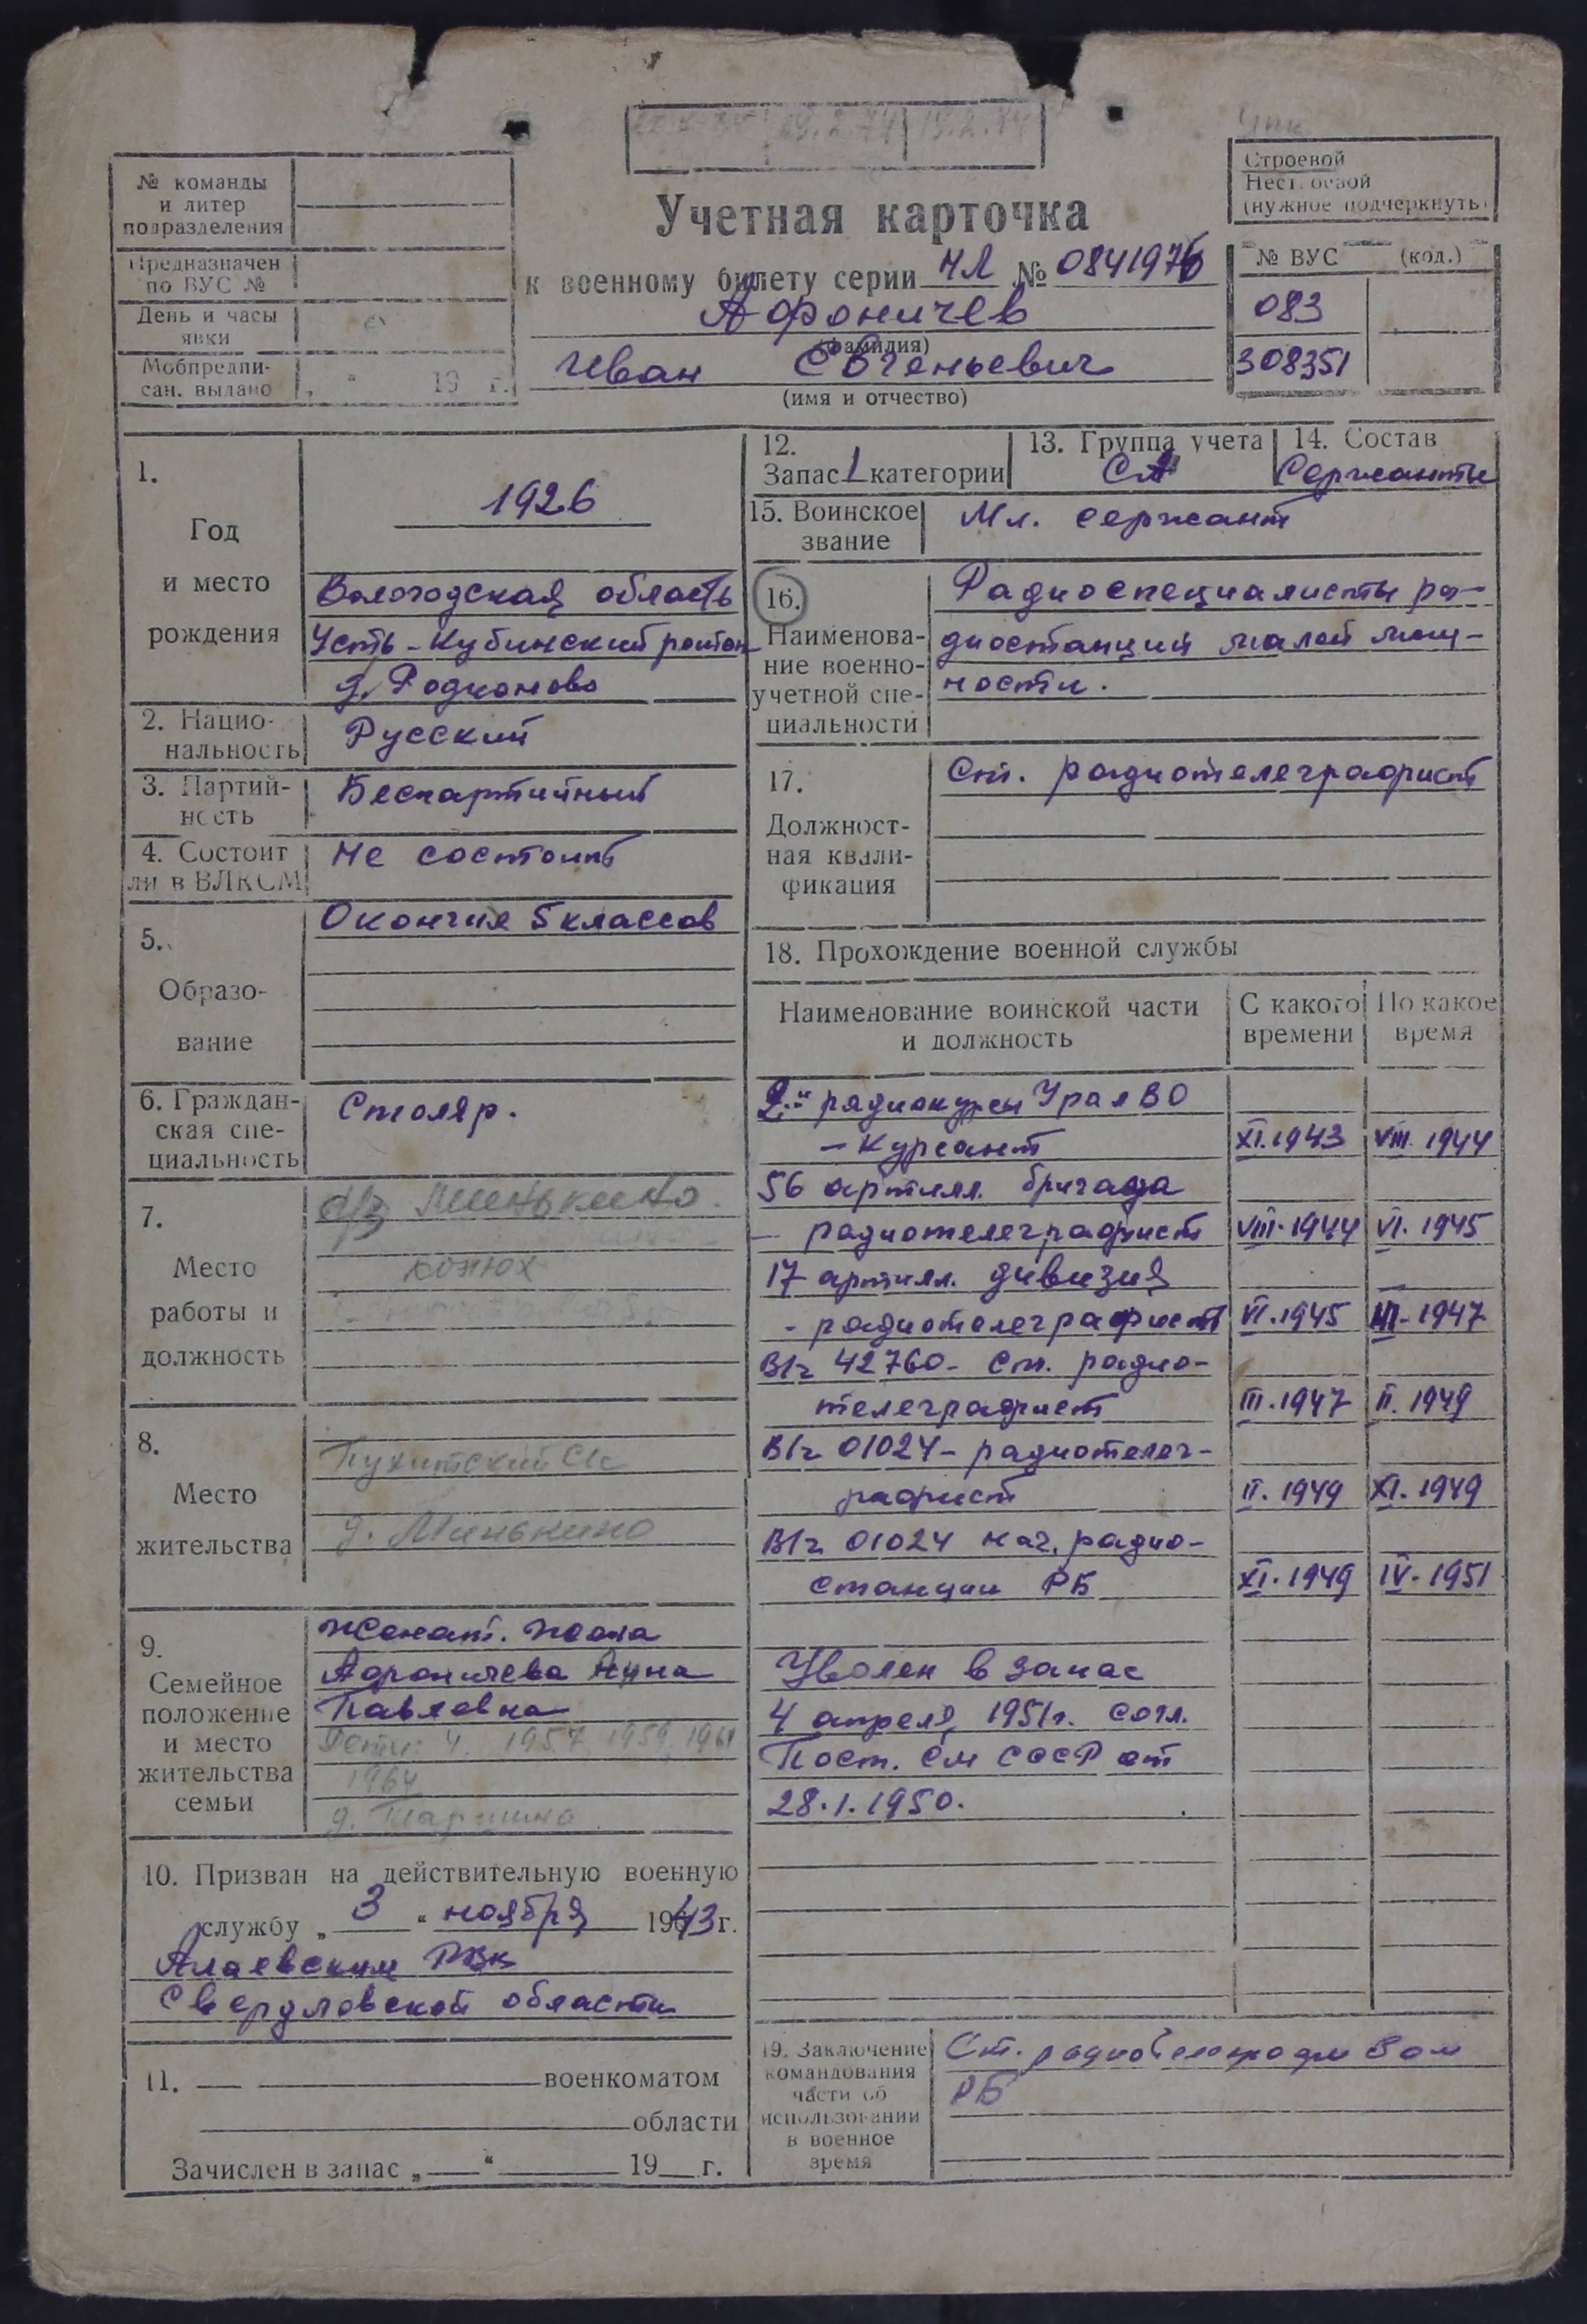 № команды
и литер
подразделения
Предназначен
по ВУС №
День и часы
явки
Мобпредпи-
сан. выдано „ “ 19 г.
Учетная карточка
к военному билету серии НЛ № 0841976
Афоничев
(фамилия)
Иван Евгеньевич
(имя и отчество)
Строевой
Нестроевой
(нужное подчеркнуть)
№ ВУС (код.)
083
308351
1.
Год
и место
рождения
1926
Вологодская область
Усть-Кубинский район
д. Родионово
2. Нацио-
нальность
Русский
3. Партий-
ность
Беспартийный
4. Состоит
ли в ВЛКСМ
Не состоит
5.
Образо-
вание
Окончил 5 классов
6. Граждан-
ская спе-
циальность
Столяр.
7.
Место
работы и
должность
Минькино.
конюх
8.
Место
жительства
д. Минькино
9.
Семейное
положение
и место
жительства
семьи
Женат. Жена
Афоничева Анна
Павловна
Дети: 4. 1957 1959, 1961
1964
10. Призван на действительную военную
службу „ 3 “ ноября 1943 г.
Алаевским РВК
Свердловской области
11. — — военкоматом
области
Зачислен в запас „ — “ 19 г.
12.
Запас 1 категории
13. Группа учета
СА
14. Состав
Сержанты
15. Воинское
звание
Мл. сержант
16.
Наименова-
ние военно-
учетной спе-
циальности
Радиоспециалисты ра-
диостанций малой мощ-
ности.
17.
Должност-
ная квали-
фикация
Ст. радиотелеграфист
18. Прохождение военной службы
Наименование воинской части
и должность
С какого
времени
По какое
время
2-ые радиокурсы УралВО
– Курсант XI.1943 VIII.1944
56 артилл. бригада
– радиотелеграфист VIII.1944 VI.1945
17 артилл. дивизия
- радиотелеграфист VI.1945 III-1947
В/ч 42760- Ст. радио-
телеграфист III.1947 II.1949
В/ч 01024- радиотелег-
рафист II.1949 XI.1949
В/ч 01024 нач. радио-
станции РБ XI.1949 IV.1951
Уволен в запас
4 апреля 1951г. согл.
Пост. СМ СССР от
28.1.1950.
19. Заключение
командования
части об
использовании
в военное
время
Ст. радиотелеграфистом
РБ